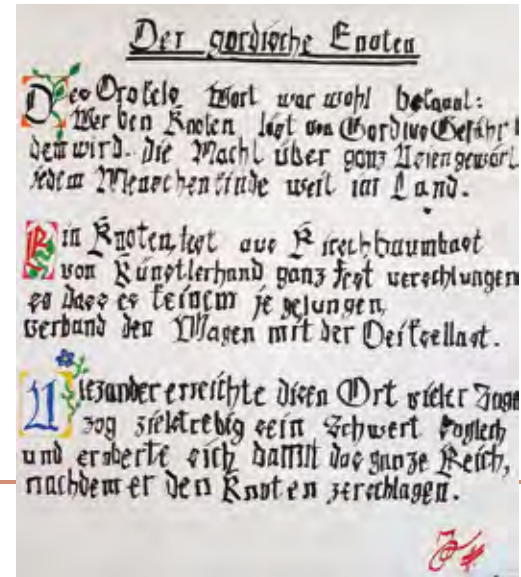 Der gordische Knoten
Des Orakels Wort war wohl bekannt:
Wer den Knoten löst von Gordius Gefährt
dem wird die Macht über ganz Asien gewährt
jedem Menschenkinde weit im Land.
Ein Knoten, fest aus Kirschbaumbast
von Künstlerhand ganz fest verschlungen
so dass es keinem je gelungen,
verband den Wagen mit der Deichsellast.
Alexander erreichte diesen Ort vieler
zog zielstrebig sein Schwert sogleich
und eroberte sich damit das ganze Reich,
nachdem er den Knoten zerschlagen.